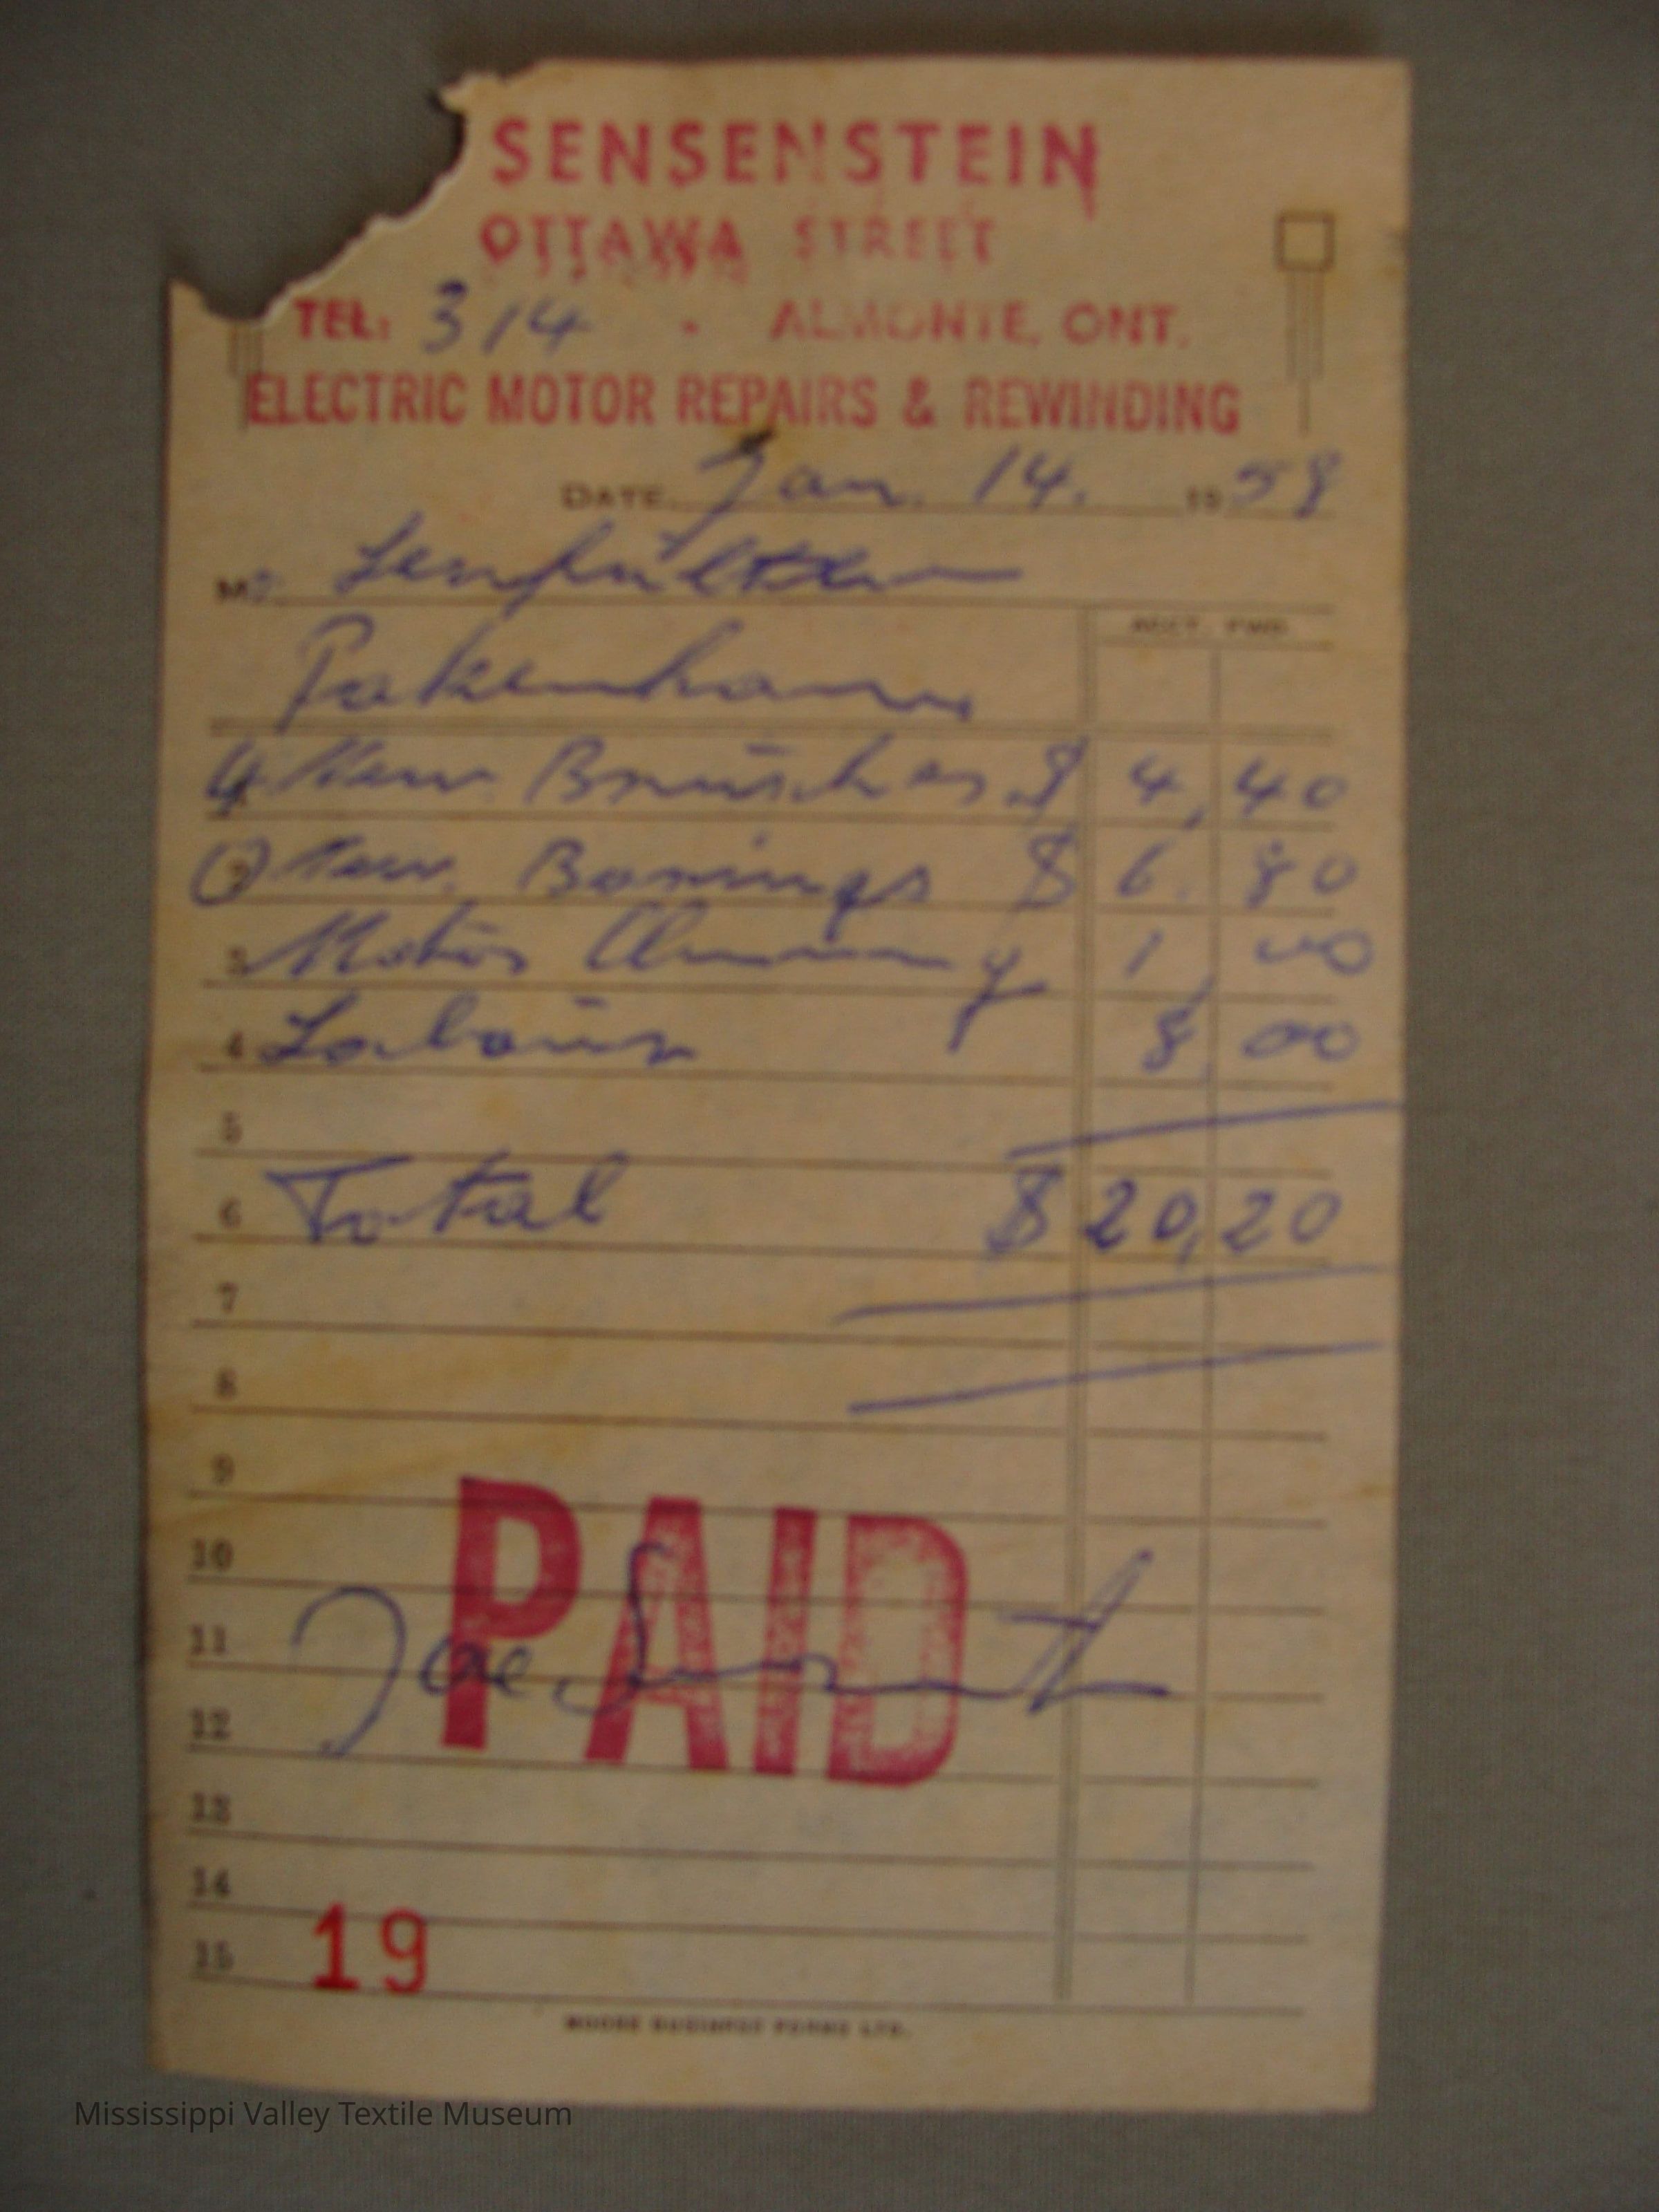 SENSENSTEIN
OTTAWA STREET
TEL: 314 . ALMONTE, ONT.
ELECTRIC MOTOR REPAIRS & REWINDING
DATE Jan. 14. 1958
M
Pakenham
ACCT. FWD.
4 New Brusches $ 4,40
2 New. Bearings $ 6.80
3 Motor 1,00
4 Labour 8,00
5
6 Total $ 20,20
7
8
9
10
PAID
11 Joe
12
13
14
15 19
MOORE BUSINESS FORMS LTD.
Mississippi Valley Textile Museum